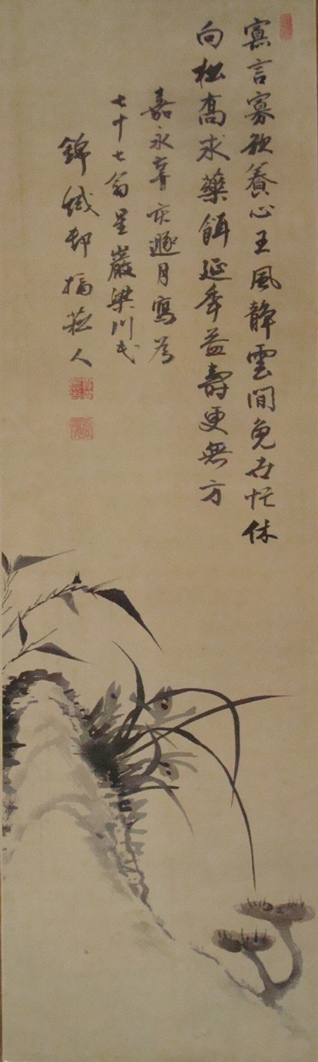 寡言寡欲養心王風靜雲間免世忙休
向松高求藥餌延年益壽更無方
嘉永辛亥遯月寫為
七十七翁星巖梁川氏
錦織邨橘菘人